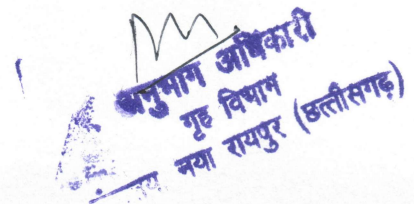 अनुभाग अधिकारी
गृह विभाग
नया रायपुर (छत्तीसगढ़)